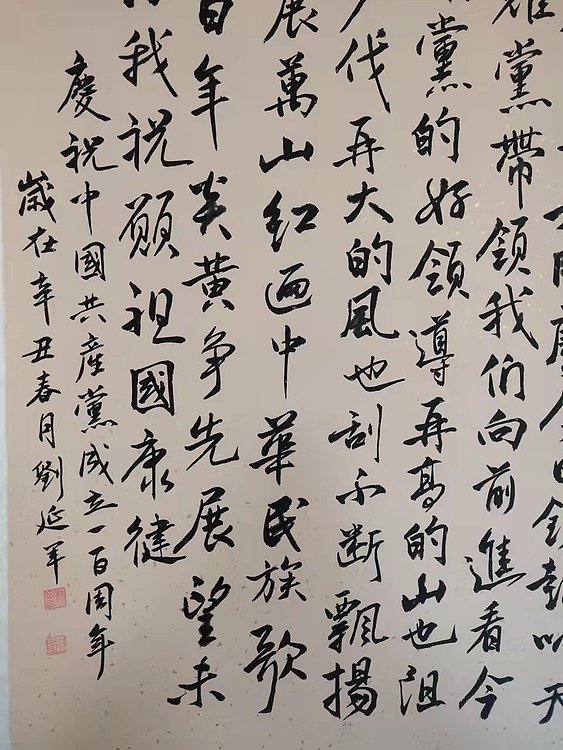 天
黨帶領我们向前進看今
黨的好領導再高的山也阻
代再大的風也刮不断飄揚
展萬山红遍中華民族歌
百年炎黄争先展望未
我祝願祖國康健
慶祝中國共產黨成立一百周年
歲在辛丑春月劉延軍